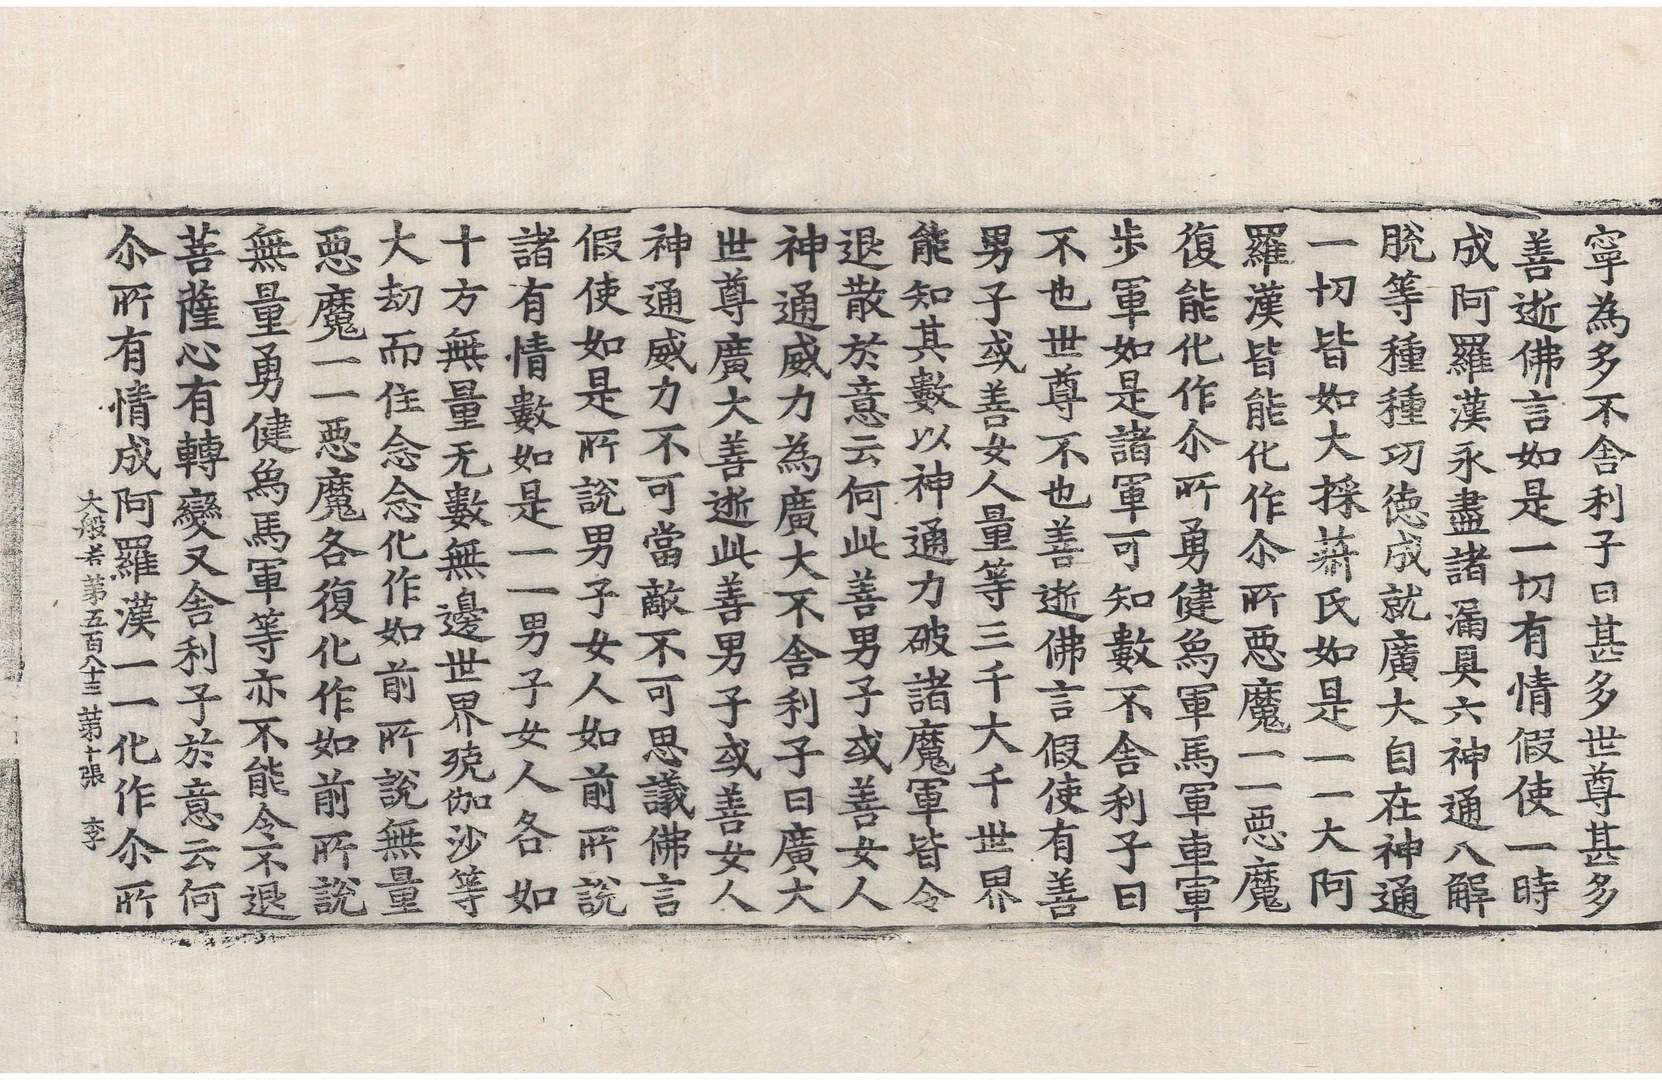 寧為多不舍利子曰甚多世尊甚多
善逝佛言如是一切有情假使一時
成阿羅漢永盡諸漏具六神通八解
脫等種種功德成就廣大自在神通
一切皆如大採菽氏如是一一大阿
羅漢皆能化作尒所惡魔一一惡魔
復能化作尒所勇健象軍馬軍車軍
步軍如是諸軍可知數不舍利子曰
不也世尊不也善逝佛言假使有善
男子或善女人量等三千大千世界
能知其數以神通力破諸魔軍皆令
退散於意云何此善男子或善女人
神通威力為廣大不舍利子曰廣大
世尊廣大善逝此善男子或善女人
神通威力不可當敵不可思議佛言
假使如是所說男子女人如前所說
諸有情數如是一一男子女人各如
十方無量无數無邊世界殑伽沙等
大劫而住念念化作如前所說無量
惡魔一一惡魔各復化作如前所說
無量勇健象馬軍等亦不能令不退
菩薩心有轉變又舍利子於意云何
尒所有情成阿羅漢一一化作尒所
大般若第五百八十三 第十張 李